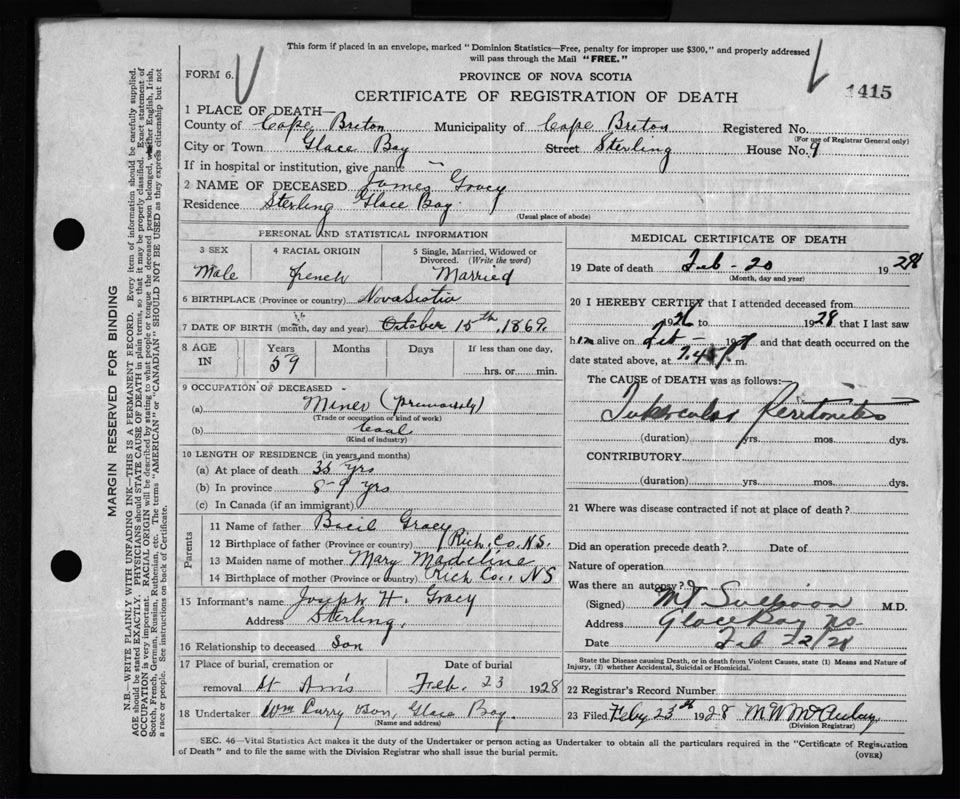 This form if placed in an envelope, marked "Dominion Statistics—Free, penalty for improper use $300," and properly addressed
will pass through the Mail "FREE."
FORM 6.
PROVINCE OF NOVA SCOTIA
CERTIFICATE OF REGISTRATION OF DEATH
1415
1 PLACE OF DEATH—
County of Cape Breton Municipality of Cape Breton Registered No.
(For use of Registrar General only)
City or Town Glace Bay Street Sterling House No. 9
If in hospital or institution, give name —
2 NAME OF DECEASED James Gracy
Residence Sterling Glace Bay.
(Usual place of abode)
PERSONAL AND STATISTICAL INFORMATION
3 SEX 4 RACIAL ORIGIN 5 Single, Married, Widowed or
Divorced. (Write the word)
Male French Married
6 BIRTHPLACE (Province or country) Nova Scotia
7 DATE OF BIRTH (month, day and year) October 15th, 1869.
8 AGE Years Months Days If less than one day,
IN 59 hrs. or min.
9 OCCUPATION OF DECEASED -
(a) Miner (previously)
(Trade or occupation or kind of work)
(b) Coal
(Kind of industry)
10 LENGTH OF RESIDENCE (in years and months)
(a) At place of death 35 yrs
(b) In province 8-9 yrs
(c) In Canada (if an immigrant)
Parents
11 Name of father Bacil Gracy
12 Birthplace of father (Province or country) Rich. Co. N.S.
13 Maiden name of mother Mary Madeline
14 Birthplace of mother (Province or country) Rich Co., NS
15 Informant's name Joseph H. Gracy
Address Sterling.
16 Relationship to deceased Son
17 Place of burial, cremation or Date of burial
removal St Ann's Feb. 23 1928
18 Undertaker Wm Curry & Son, Glace Bay.
(Name and address)
MEDICAL CERTIFICATE OF DEATH
19 Date of death Feb - 20 1928
(Month, day and year)
20 I HEREBY CERTIFY that I attended deceased from
1926 to 1928 that I last saw
him alive on Feb - 1928 and that death occurred on the
date stated above, at 7.45 P. m.
The CAUSE of DEATH was as follows:
Tubercular Peritonitis
(duration) yrs. mos. dys.
CONTRIBUTORY
(duration) yrs. mos. dys.
21 Where was disease contracted if not at place of death?
Did an operation precede death? Date of
Nature of operation
Was there an autopsy?
(Signed) M.D.
Address Glace Bay NS.
Date Feb 22/28
State the Disease causing Death, or in death from Violent Causes, state (1) Means and Nature of
Injury, (2) whether Accidental, Suicidal or Homicidal.
22 Registrar's Record Number
23 Filed Feby 23th 1928 M W McAulay
(Division Registrar)
SEC. 46—Vital Statistics Act makes it the duty of the Undertaker or person acting as Undertaker to obtain all the particulars required in the "Certificate of Registration
of Death" and to file the same with the Division Registrar who shall issue the burial permit.
(OVER)
MARGIN RESERVED FOR BINDING
N.B.—WRITE PLAINLY WITH UNFADING INK—THIS IS A PERMANENT RECORD. Every item of information should be carefully supplied.
AGE should be stated EXACTLY. PHYSICIANS should STATE CAUSE OF DEATH in plain terms, so that it may be properly classified. Exact statement of
OCCUPATION is very important. RACIAL ORIGIN will be described by stating to what people or tongue the deceased person belonged, whether English, Irish,
Scotch, French, German, Russian, Ruthenian, etc. The terms "AMERICAN" or "CANADIAN" SHOULD NOT BE USED as they express citizenship but not
a race or people. See instructions on back of Certificate.